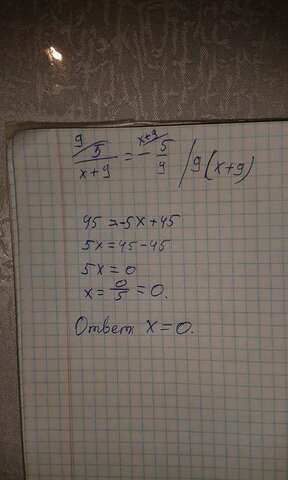 9/ 5/(x+9) = x+9/ -5/9 / 9(x+9)
45 = -5x+45
5x = 45-45
5x = 0
x = 0/5 = 0.
Ответ: x = 0.